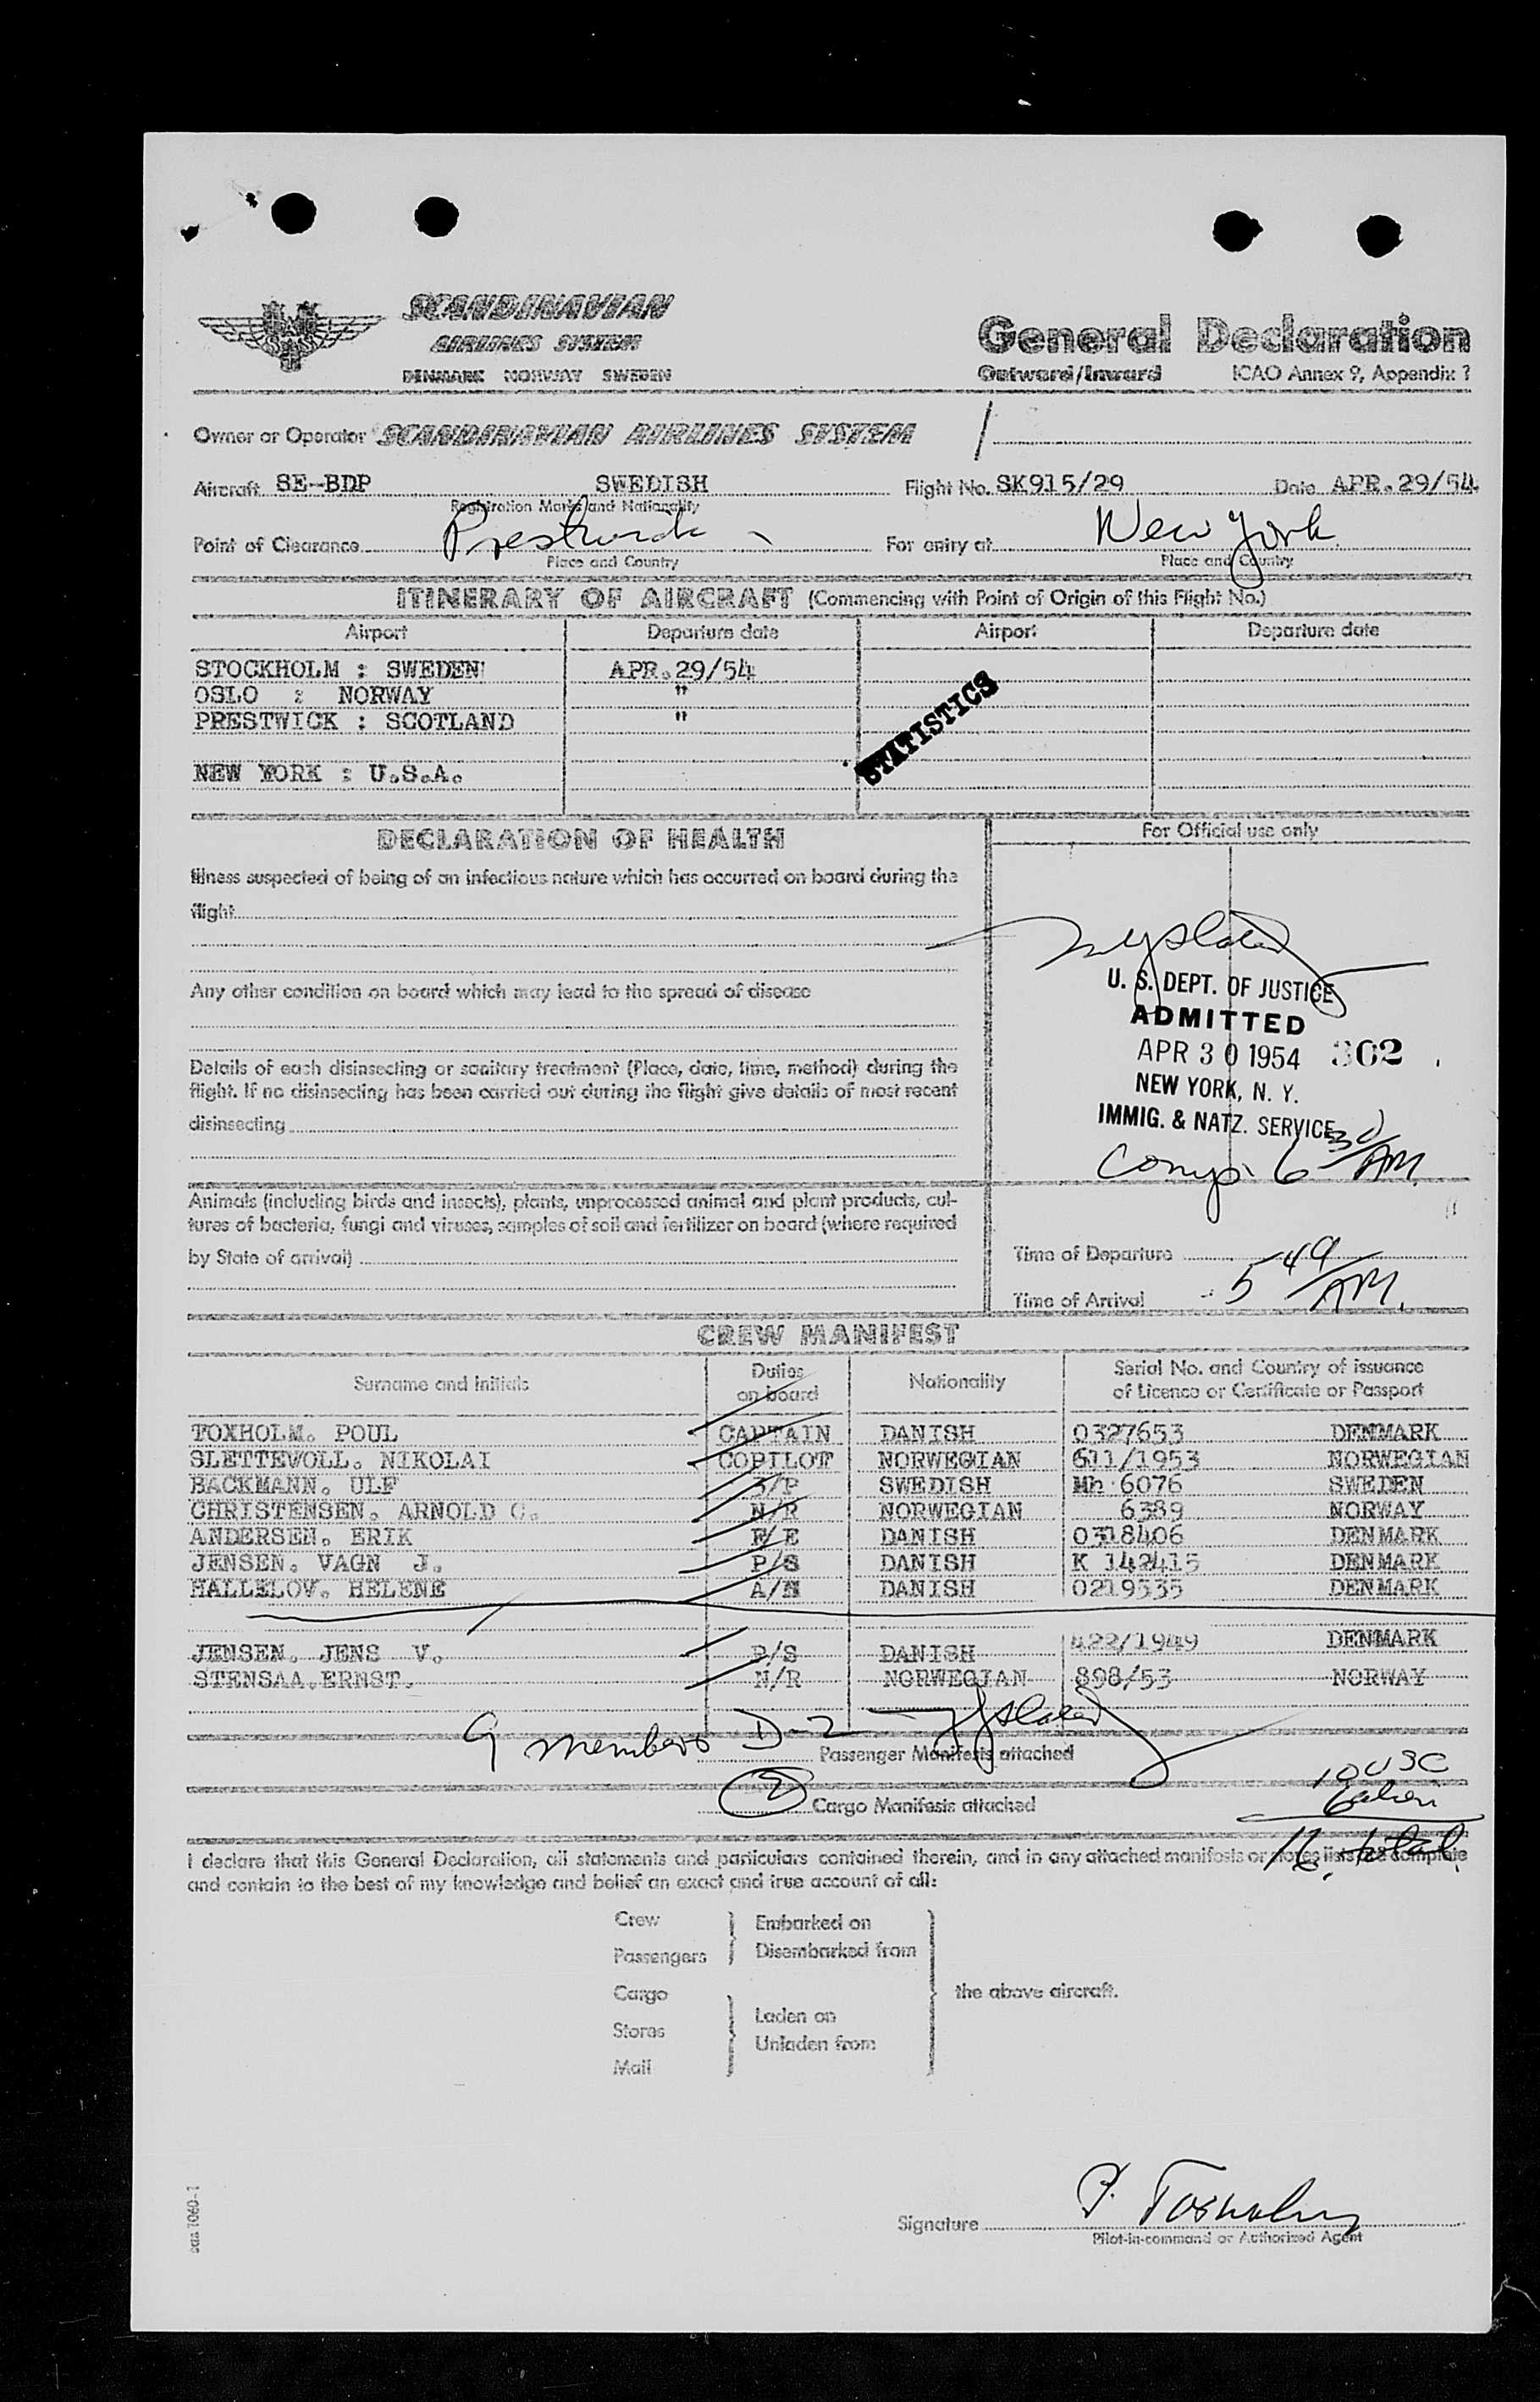 SCANDINAVIAN
AIRLINES SYSTEM
DENMARK NORWAY SWEDEN
General Declaration
Outward/Inward ICAO Annex 9, Appendix 1
Owner or Operator SCANDINAVIAN AIRLINES SYSTEM
Aircraft SE-BDP SWEDISH Flight No. SK915/29 Date APR.29/54
Registration Marks and Nationality
Point of Clearance Prestwick For entry at New York
Place and Country Place and Country
ITINERARY OF AIRCRAFT (Commencing with Point of Origin of this Flight No.)
Airport Departure date Airport Departure date
STOCKHOLM : SWEDEN APR.29/54
OSLO : NORWAY "
PRESTWICK : SCOTLAND "
STATISTICS
NEW YORK : U.S.A.
DECLARATION OF HEALTH
For Official use only
Illness suspected of being of an infectious nature which has occurred on board during the
flight
Any other condition on board which may lead to the spread of disease
Details of each disinsecting or sanitary treatment (Place, date, time, method) during the
flight. If no disinsecting has been carried out during the flight give details of most recent
disinsecting
U. S. DEPT. OF JUSTICE
ADMITTED
APR 30 1954 302
NEW YORK, N. Y.
IMMIG. & NATZ. SERVICE
6 30 AM
Animals (including birds and insects), plants, unprocessed animal and plant products, cul-
tures of bacteria, fungi and viruses, samples of soil and fertilizer on board (where required
by State of arrival)
Time of Departure
Time of Arrival 5 49 AM.
CREW MANIFEST
Surname and Initials Duties on board Nationality Serial No. and Country of issuance of Licence or Certificate or Passport
TOXHOLM. POUL CAPTAIN DANISH 0327653 DENMARK
SLETTEVOLL. NIKOLAI COPILOT NORWEGIAN 611/1953 NORWEGIAN
BACKMANN. ULF 3/P SWEDISH Mh 6076 SWEDEN
CHRISTENSEN. ARNOLD C. N/R NORWEGIAN 6389 NORWAY
ANDERSEN. ERIK F/E DANISH 0318406 DENMARK
JENSEN. VAGN J. P/S DANISH K 142415 DENMARK
HALLELOV. HELENE A/H DANISH 0219535 DENMARK
JENSEN. JENS V. P/S DANISH 422/1949 DENMARK
STENSAA.ERNST. N/R NORWEGIAN 898/53 NORWAY
9 members D-2
Passenger Manifests attached
2 Cargo Manifests attached
10 USC
6 alien
16 total
I declare that this General Declaration, all statements and particulars contained therein, and in any attached manifests or stores lists, are complete
and contain to the best of my knowledge and belief an exact and true account of all:
Crew
Passengers
Embarked on
Disembarked from
Cargo
Stores
Mail
Laden on
Unladen from
the above aircraft.
sas 1060-1
Signature P. Toxholm
Pilot-in-command or Authorized Agent